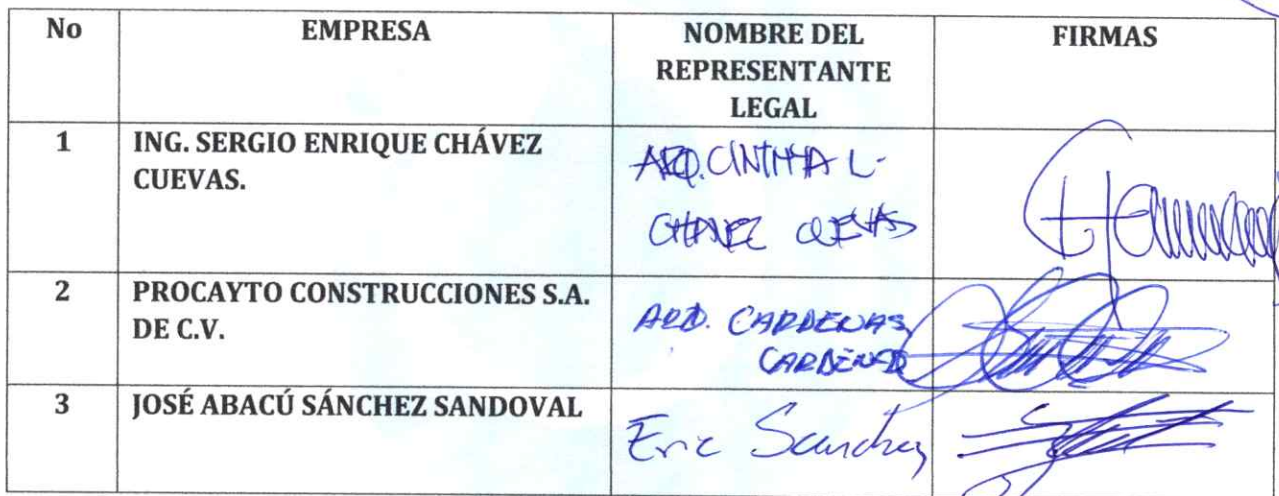 No EMPRESA NOMBRE DEL REPRESENTANTE LEGAL FIRMAS
1 ING. SERGIO ENRIQUE CHÁVEZ
CUEVAS.
ARQ. CINTHYA L.
CHAVEZ CUEVAS
2 PROCAYTO CONSTRUCCIONES S.A.
DE C.V.
ARQ. CARDENAS
CARDENAS
3 JOSÉ ABACÚ SÁNCHEZ SANDOVAL
Eric Sanchez